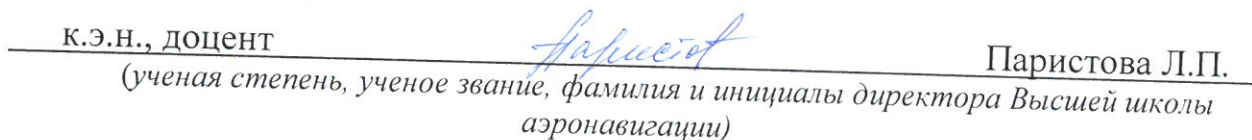 к.э.н., доцент Паристов Паристова Л.П.
(ученая степень, ученое звание, фамилия и инициалы директора Высшей школы
аэронавигации)